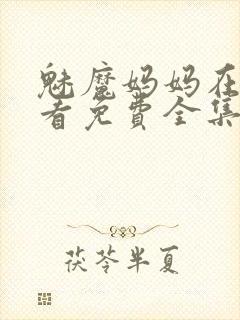 魅魔妈妈在
看免费全集
茯苓半夏